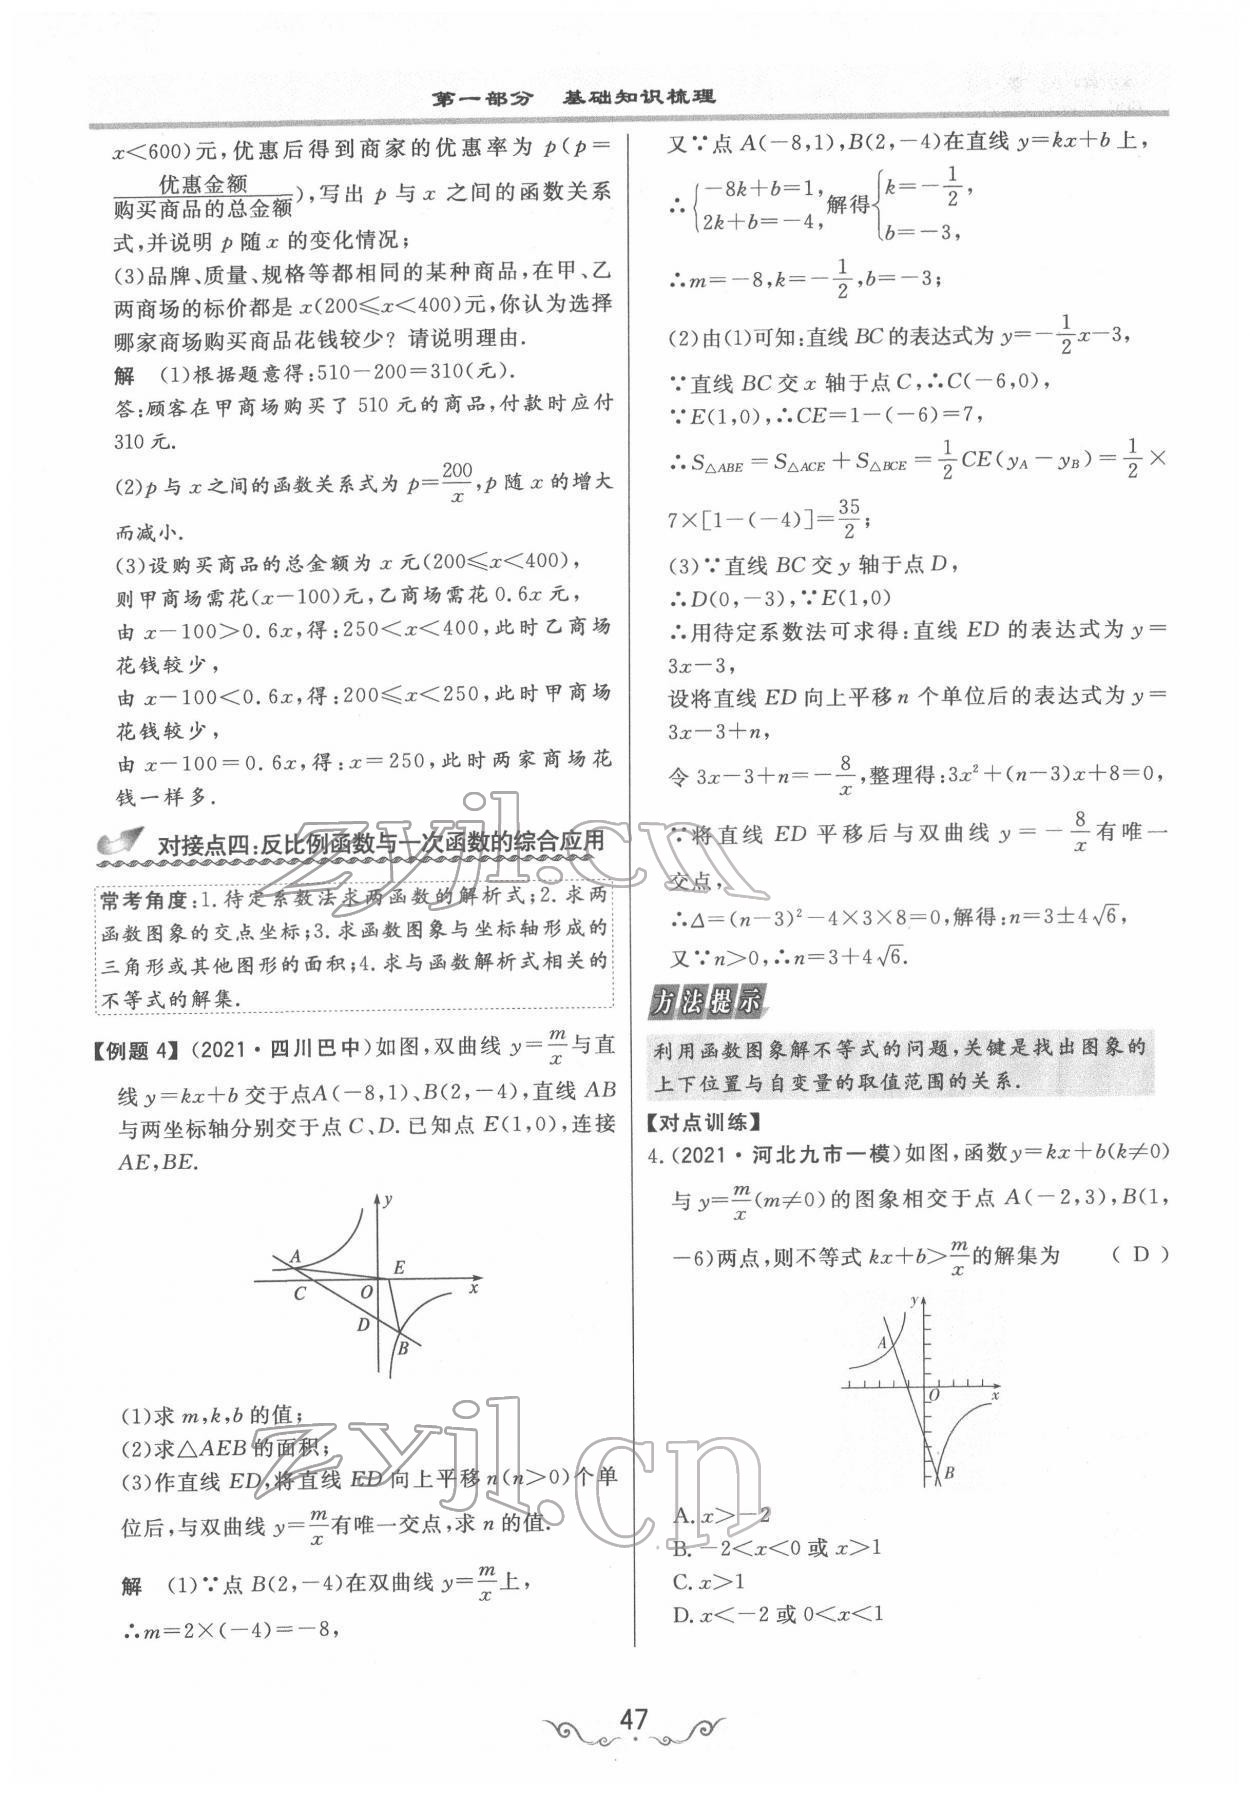 第一部分 基础知识梳理
x<600)元,优惠后得到商家的优惠率为 p(p=
优惠金额/购买商品的总金额),写出 p 与 x 之间的函数关系
式,并说明 p 随 x 的变化情况;
(3)品牌、质量、规格等都相同的某种商品,在甲、乙
两商场的标价都是 x(200≤x<400)元,你认为选择
哪家商场购买商品花钱较少? 请说明理由.
解 (1)根据题意得:510-200=310(元).
答:顾客在甲商场购买了 510 元的商品,付款时应付
310 元.
(2)p 与 x 之间的函数关系式为 p=200/x,p 随 x 的增大
而减小.
(3)设购买商品的总金额为 x 元(200≤x<400),
则甲商场需花(x-100)元,乙商场需花 0.6x 元,
由 x-100>0.6x,得:250<x<400,此时乙商场
花钱较少,
由 x-100<0.6x,得:200≤x<250,此时甲商场
花钱较少,
由 x-100=0.6x,得:x=250,此时两家商场花
钱一样多.
对接点四:反比例函数与一次函数的综合应用
常考角度:1.待定系数法求两函数的解析式;2.求两
函数图象的交点坐标;3.求函数图象与坐标轴形成的
三角形或其他图形的面积;4.求与函数解析式相关的
不等式的解集.
【例题 4】(2021·四川巴中)如图,双曲线 y=m/x与直
线 y=kx+b 交于点A(-8,1)、B(2,-4),直线 AB
与两坐标轴分别交于点 C、D.已知点 E(1,0),连接
AE,BE.
y
A
E
C
O
x
D
B
(1)求 m,k,b 的值;
(2)求△AEB 的面积;
(3)作直线 ED,将直线 ED 向上平移 n(n>0)个单
位后,与双曲线 y=m/x有唯一交点,求 n 的值.
解 (1)∵点 B(2,-4)在双曲线 y=m/x上,
∴m=2×(-4)=-8,
又∵点 A(-8,1),B(2,-4)在直线 y=kx+b 上,
∴{-8k+b=1, 2k+b=-4, 解得{k=-1/2, b=-3,
∴m=-8,k=-1/2,b=-3;
(2)由(1)可知:直线 BC的表达式为 y=-1/2x-3,
∵直线 BC 交 x 轴于点 C,∴C(-6,0),
∵E(1,0),∴CE=1-(-6)=7,
∴S△ABE=S△ACE+S△BCE=1/2CE(yA-yB)=1/2×
7×[1-(-4)]=35/2;
(3)∵直线 BC 交 y 轴于点 D,
∴D(0,-3),∵E(1,0)
∴用待定系数法可求得:直线 ED 的表达式为 y=
3x-3,
设将直线 ED 向上平移 n 个单位后的表达式为 y=
3x-3+n,
令 3x-3+n=-8/x,整理得:3x²+(n-3)x+8=0,
∵将直线 ED 平移后与双曲线 y=-8/x有唯一
交点,
∴Δ=(n-3)²-4×3×8=0,解得:n=3±4√6,
又∵n>0,∴n=3+4√6.
方法提示
利用函数图象解不等式的问题,关键是找出图象的
上下位置与自变量的取值范围的关系.
【对点训练】
4.(2021·河北九市一模)如图,函数y=kx+b(k≠0)
与 y=m/x(m≠0)的图象相交于点 A(-2,3),B(1,
-6)两点,则不等式 kx+b>m/x的解集为 ( D )
y
A
O
x
B
A. x>-2
B. -2<x<0 或 x>1
C. x>1
D. x<-2 或 0<x<1
47
zyjl.cn
zyjl.cn